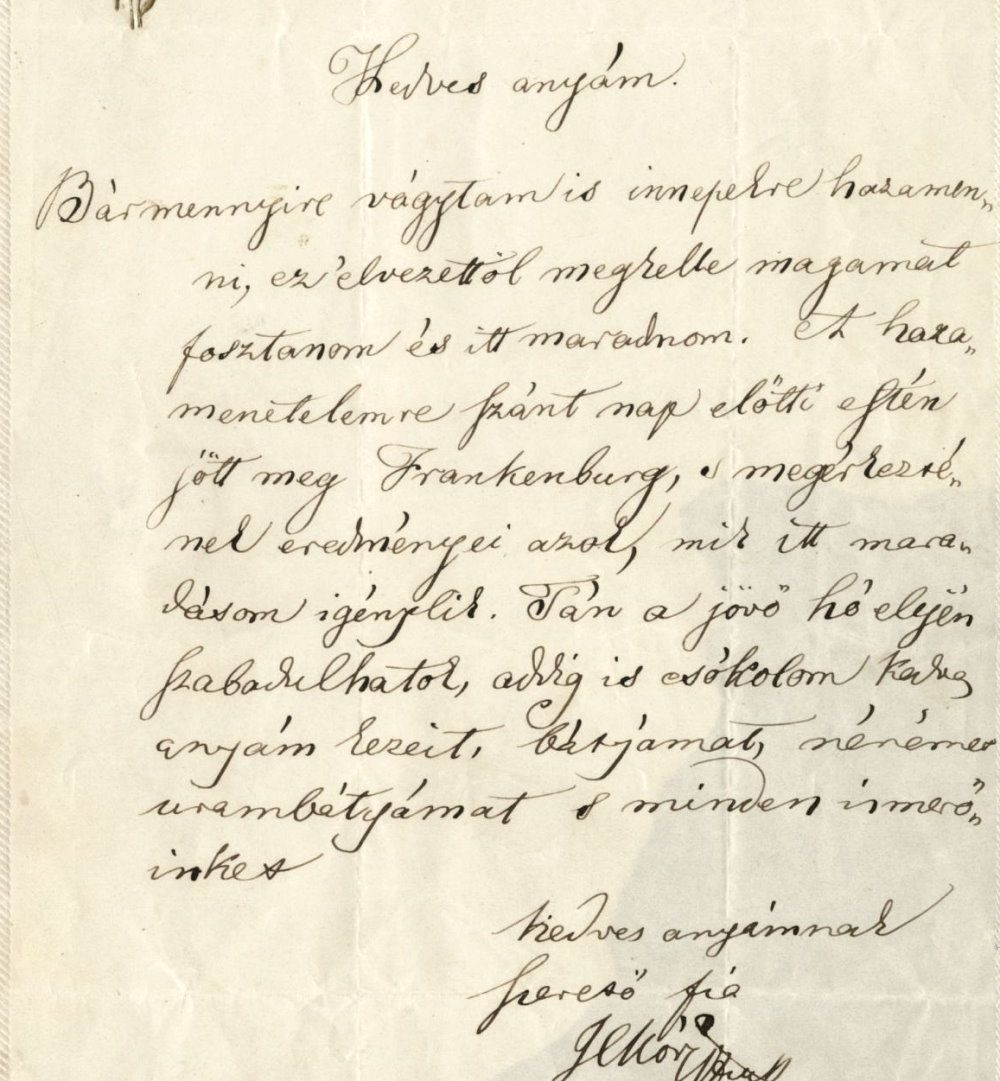 Kedves anyám.
Bármennyire vágytam is innepekre hazamen„
ni, ez élvezettöl megkelle magamat
fosztanom és itt maradnom. A haza„
menetelemre szánt nap elötti estén
jött meg Frankenburg, s megérkezté„
nek eredményei azok, mik itt mara„
dásom igénylik. Tán a jövö hó elején
szabadulhatok, addig is csókolom kedves
anyám kezeit, bátyámat, nénémet
urambátyámat s minden ismerö„
inket
Kedves anyámnak
szeretö fia